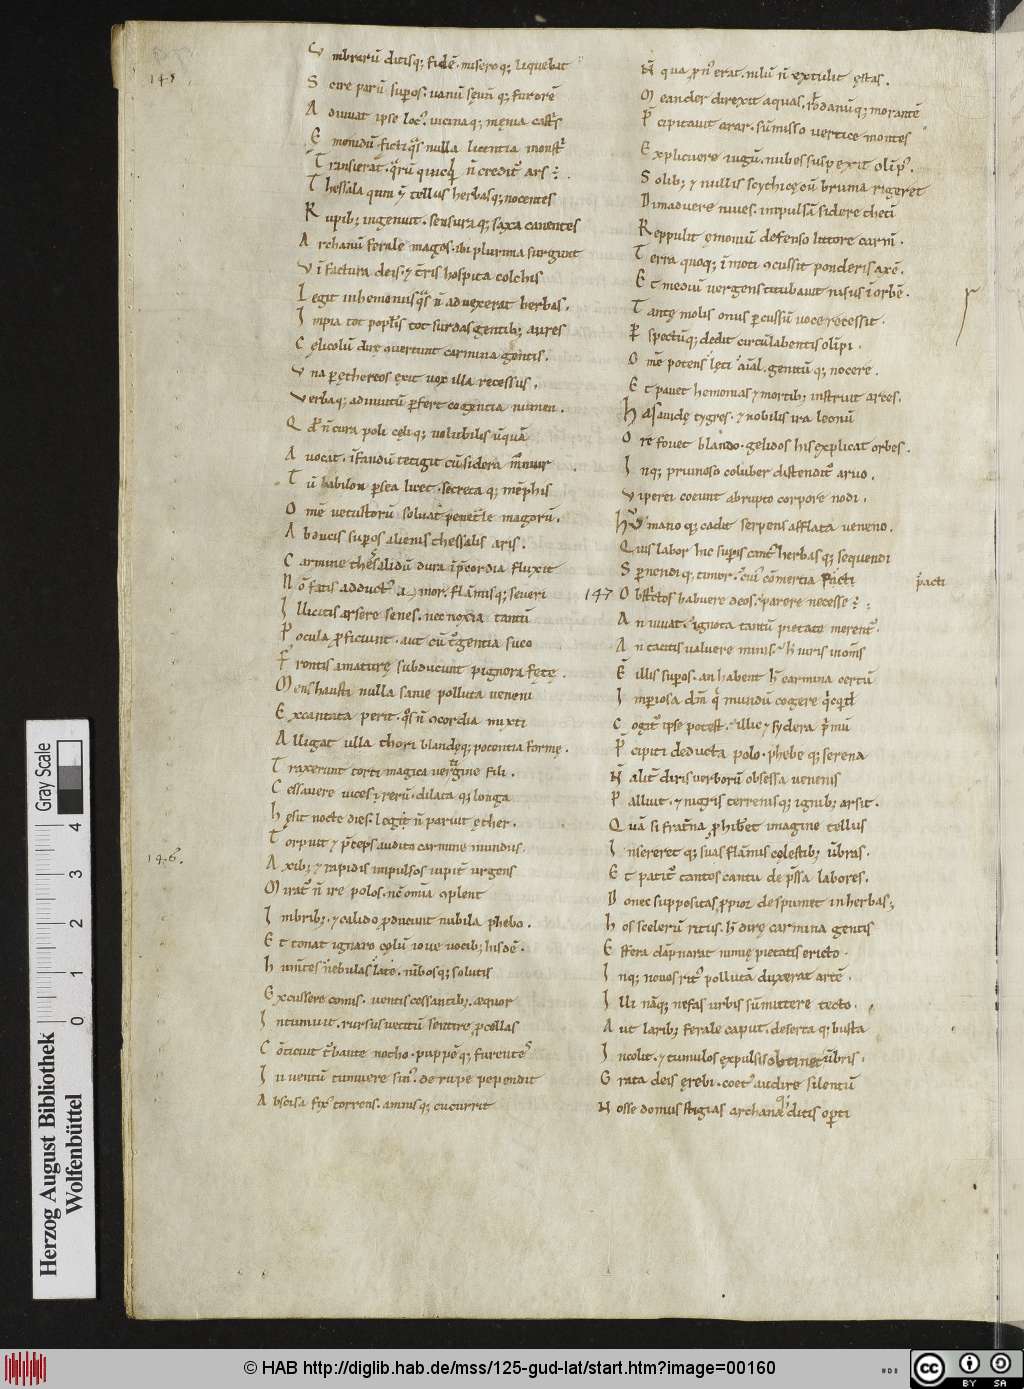 145
Vmbrarū ditisq; fidē. miseroq; liquebat
Scire parū sup̄os. uanū sęuūq; furorē
Adiuuat ipse loc᾿. uicinaq; męnia castr̄s
Emonidū fictiq̄s nulla licentia monstr̄
Transierat. q̄rū quicq̄d n̄ creditᷣ ars ē.
Thessala quin ⁊ tellus herbasq; nocentes
Rupib; ingenuit. sensuraq; saxa canentes
Archanū ferale magos. ibi plurima surgunt
Vī factura deis. ⁊ t̄ris hospita colchis
Legit in hemoniis q̄s n̄ aduexerat herbas.
Impia tot popl̄is tot surdas gentib; aures
Cęlicolū dirę ꝯuertunt carmina gentis.
Vna ꝑ ęthereos exit uox illa recessus.
Verbaq; ad inuitū ꝑfert cogentia numen.
Qd̄ n̄ cura poli cęliq; uolubilis ūquā
Auocat. īfandū tetigit cū sidera murmur
Tū babilon ꝑsea licet. secretaq; mēphis
Omē uetustorū soluat penetr̄le magorū.
Abducit sup̄os alienis thessalis aris.
Carmine thessalidū dura ī p̄cordia fluxit
Nō fatis adduct᾿ amor. flāmisq; seueri
Illicitis arsere senes. nec noxia tantū
Pocula ꝓficiunt. aut cū tᷣgentia suco
Frontis amaturę subducunt pignora fętę.
Mens hausti nulla sanie polluta ueneni
Excantata perit. q̄s n̄ ꝯcordia mixti
Alligat ulla thori blandęq; potentia formę.
Traxerunt torti magica uertigine fili.
Cessauere uices rerū. dilataq; longa
Hęsit nocte dies. legi n̄ paruit ęther.
Torpuit ⁊ p̄ceps audito carmine mundus.
146.
Axib; ⁊ rapidis impulsos iupitᷣ urgens
Miratᷣ n̄ ire polos. nc̄ omīa ꝯplent
Imbrib; ⁊ calido ꝓducunt nubila phebo.
Et tonat ignaro cęlū ioue uocib; hisdē.
Humētes nebulas late. nībosq; solutis
Excussere comis. uentis cessantib; ęquor
Intumuit. rursus uetitū sentire ꝓcellas
Cōticuit tᷣbante notho. puppēq; ferentes
In uentū tumuere sin᾿. de rupe pependit
Abscisa fix᾿ torrens. amnisq; cucurrit
N̄ qua pron᾿ erat. nilū n̄ extulit ęstas.
Meander direxit aquas. rodanūq; morantē
P̄cipitauit arar. sūmisso uertice montes
Explicuere iugū. nubes suspexit olīp᾿.
Solib; ⁊ nullis scythicę cū bruma rigeret
Dimaduere niues. impulsā sidere thetī
Reppulit ęmoniū defenso littore carm̄.
Terra quoq; īmoti ꝯcussit ponderis axē.
Et mediū uergens titubauit nisus ī orbē.
Tantę molis onus ꝑcussū uoce recessit.
Pspectūq; dedit circū labentis olīpi.
Omē potens lęti aīal. genitūq; nocere.
Et pauet hemonias ⁊ mortib; instruit artes.
Has auidę tygres. ⁊ nobilis ira leonū
Ore fouet blando. gelidos his explicat orbes.
Inq; pruinoso coluber distenditᷣ aruo.
Viperei coeunt abrupto corpore nodi.
Humanoq; cadit serpens afflata ueneno.
Quis labor hic sup̄is cant᾿ herbasq; sequendi
Spernendiq; timor. cui᾿ cōmercia pacti
p̄acti
147
Obstrictos habuere deos. parere necesse ē.
An iuuat. ignota tantū pietate merentᷣ.
An tacitis ualuere minis. h̄ iuris inom̄s
Ē illis sup̄os. an habent h̄ carmina certū
Imꝑiosa dm̄ q̄ mundū cogere q̄cq̄d
Cogitᷣ ipse potest. illic ⁊ sydera p̄mū
P̄cipiti deducta polo. phebeq; serena
N̄ alit̄ diris uerborū obsessa uenenis
Palluit. ⁊ nigris terrenisq; ignib; arsit.
Quā si frat̄na ꝓhibet imagine tellus
Insereretq; suas flāmis cęlestib; ūbras.
Et patitᷣ cantos cantu dep̄ssa labores.
Donec suppositas ꝓpior despumet in herbas;
Hos scelerū ritus. h̄ dirę carmina gentis
Effera dāpnarat nimię pietatis ericto.
Inq; nouos rit᾿ pollutā duxerat artē.
Illi nāq; nefas urbis sūmittere tecto.
Aut larib; ferale caput. desertaq; busta
Incolit. ⁊ tumulos expulsis obtinet ūbris.
Grata deis ęrebi. coet᾿ audire silentū
Nosse domus stigias archanaq; ditis oꝑti
Herzog August Bibliothek
Wolfenbüttel
0 1 2 3 4
Gray Scale
© HAB http://diglib.hab.de/mss/125-gud-lat/start.htm?image=00160
cc BY SA